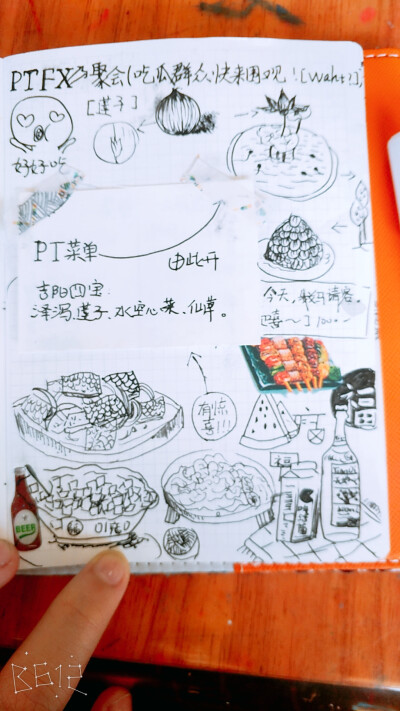 PTFX乃聚会(吃瓜群众快来围观![Waht?]
[莲子]
好好吃
PT菜单
由此开
吉阳四宝:
泽泻、莲子、水空心菜、仙草。
今天,我们请客。
嘻~]
有惊喜!!!
BEER
福
B612